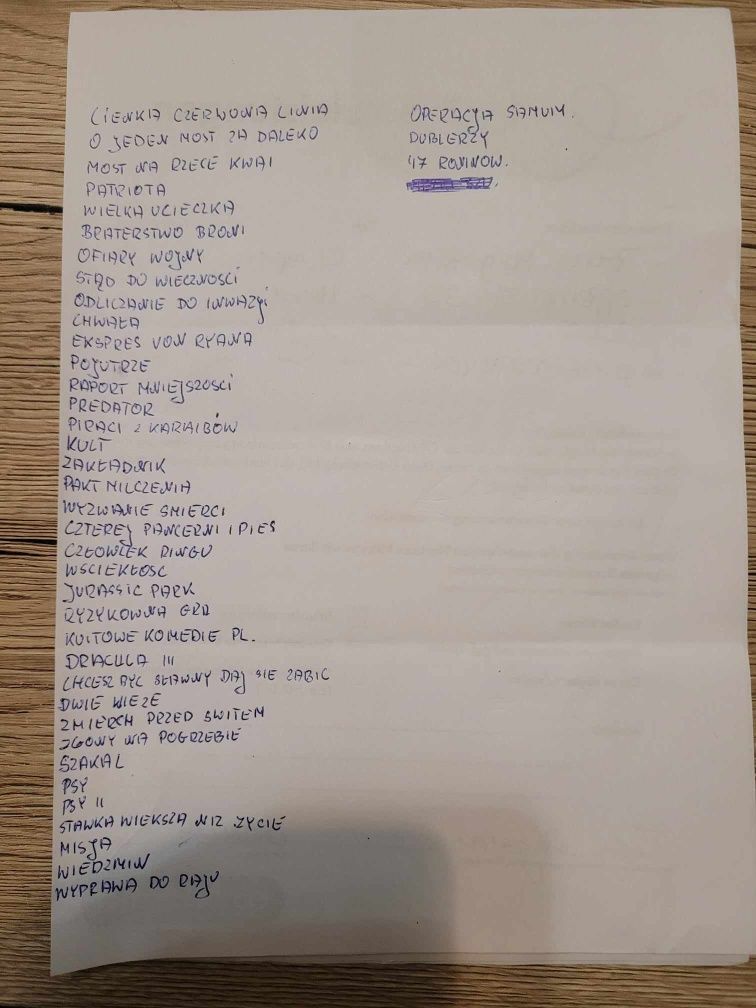 CIENKA CZERWONA LINIA
O JEDEN MOST ZA DALEKO
MOST NA RZECE KWAI
PATRIOTA
WIELKA UCIECZKA
BRATERSTWO BRONI
OFIARY WOJNY
STĄD DO WIECZNOŚCI
ODLICZANIE DO INWAZJI
CHWAŁA
EKSPRES VON RYANA
POJUTRZE
RAPORT MNIEJSZOŚCI
PREDATOR
PIRACI Z KARAIBÓW
KULT
ZAKŁADNIK
PAKT MILCZENIA
WYZWANIE ŚMIERCI
CZTEREJ PANCERNI I PIES
CZŁOWIEK RINGU
WŚCIEKŁOŚĆ
JURASSIC PARK
RYZYKOWNA GRA
KULTOWE KOMEDIE PL.
DRACULA III
CHCESZ BYĆ SŁAWNY DAJ SIE ZABIĆ
DWIE WIEZE
ZMIERCH PRZED SWITEM
ZGONY NA POGRZEBIE
SZAKAL
PSY
PSY II
STAWKA WIEKSZA NIZ ZYCIE
MISJA
WIEDZMIN
WYPRAWA DO RAJU
OPERACJA SAMUM.
DUBLERZY
47 RONINÓW.